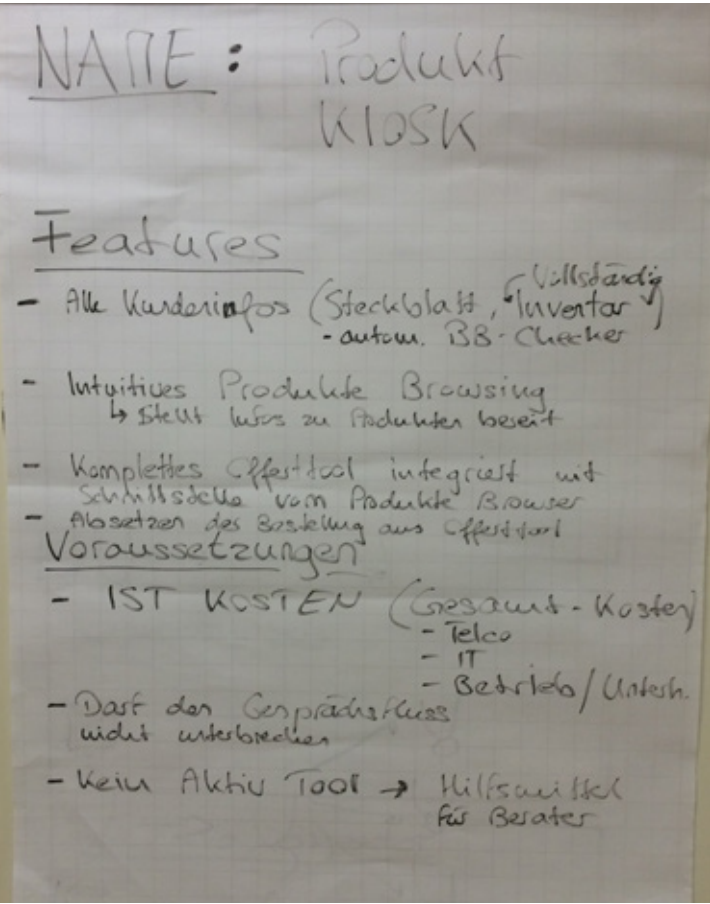 NAME: Produkt
KIOSK
Features
- Alle Kundeninfos (Steckblatt, Inventar)
Vollständig
- autom. BB-Checker
- Intuitives Produkte Browsing
↳ Stellt Infos zu Produkten bereit
- Komplettes Offerttool integriert mit
Schnittstelle vom Produkte Browser
- Absetzen der Bestellung aus Offerttool
Voraussetzungen
- IST KOSTEN (Gesamt-Kosten)
- Telco
- IT
- Betrieb/Unterh.
- Darf den Gesprächsfluss
nicht unterbrechen
- Kein Aktiv Tool → Hilfsmittel
für Berater